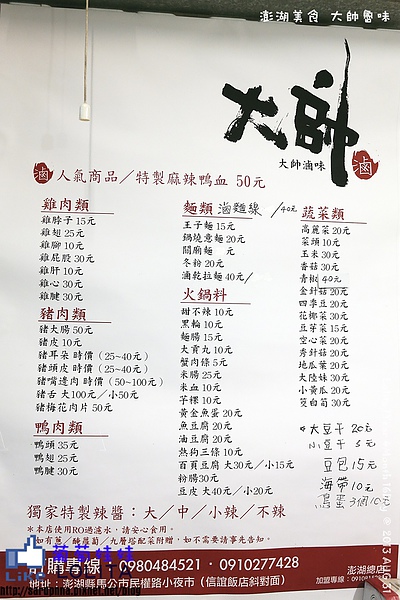 澎湖美食 大帥魯味
大帥
大帥滷味
滷
滷 人氣商品／特製麻辣鴨血 50元
雞肉類
雞脖子 15元
雞翅 25元
雞腳 10元
雞屁股 30元
雞肝 10元
雞心 30元
雞腱 30元
豬肉類
豬大腸 50元
豬皮 10元
豬耳朵 時價（25~40元）
豬頭皮 時價（25~40元）
豬嘴邊肉 時價（50~100元）
豬舌 大100元／小50元
豬梅花肉片 50元
鴨肉類
鴨頭 35元
鴨翅 25元
鴨腱 30元
麵類 滷麵線 /40元
王子麵 15元
鍋燒意麵 20元
關廟麵 元
冬粉 20元
滷乾拉麵 40元/
火鍋料
甜不辣 10元
黑輪 10元
麵腸 15元
大貢丸 10元
蟹肉條 5元
米腸 25元
米血 10元
芋粿 10元
黃金魚蛋 20元
魚豆腐 20元
油豆腐 20元
熱狗三條 10元
百頁豆腐 大30元／小15元
粉腸30元
豆皮 大40元／小20元
蔬菜類
高麗菜 20元
菜頭 10元
玉米 30元
香菇 30元
青椒 40元
金針菇 20元
四季豆 20元
花椰菜 30元
豆芽菜 15元
空心菜 20元
秀針菇 20元
地瓜葉 20元
大陸妹 30元
小黃瓜 20元
茭白筍 30元
大豆干 20元
小豆干 5元
豆包 15元
海帶 10元
鳥蛋 3個10元
獨家特製辣醬：大／中／小辣／不辣
＊本店使用RO過濾水，請安心食用。
如有蔥／醃蘿蔔／九層塔配菜附贈，如不需要請事先告知。
購專線 0980484521・0910277428
地址：澎湖縣馬公市民權路小夜市（信誼飯店斜對面）
澎湖總店
加盟專線：